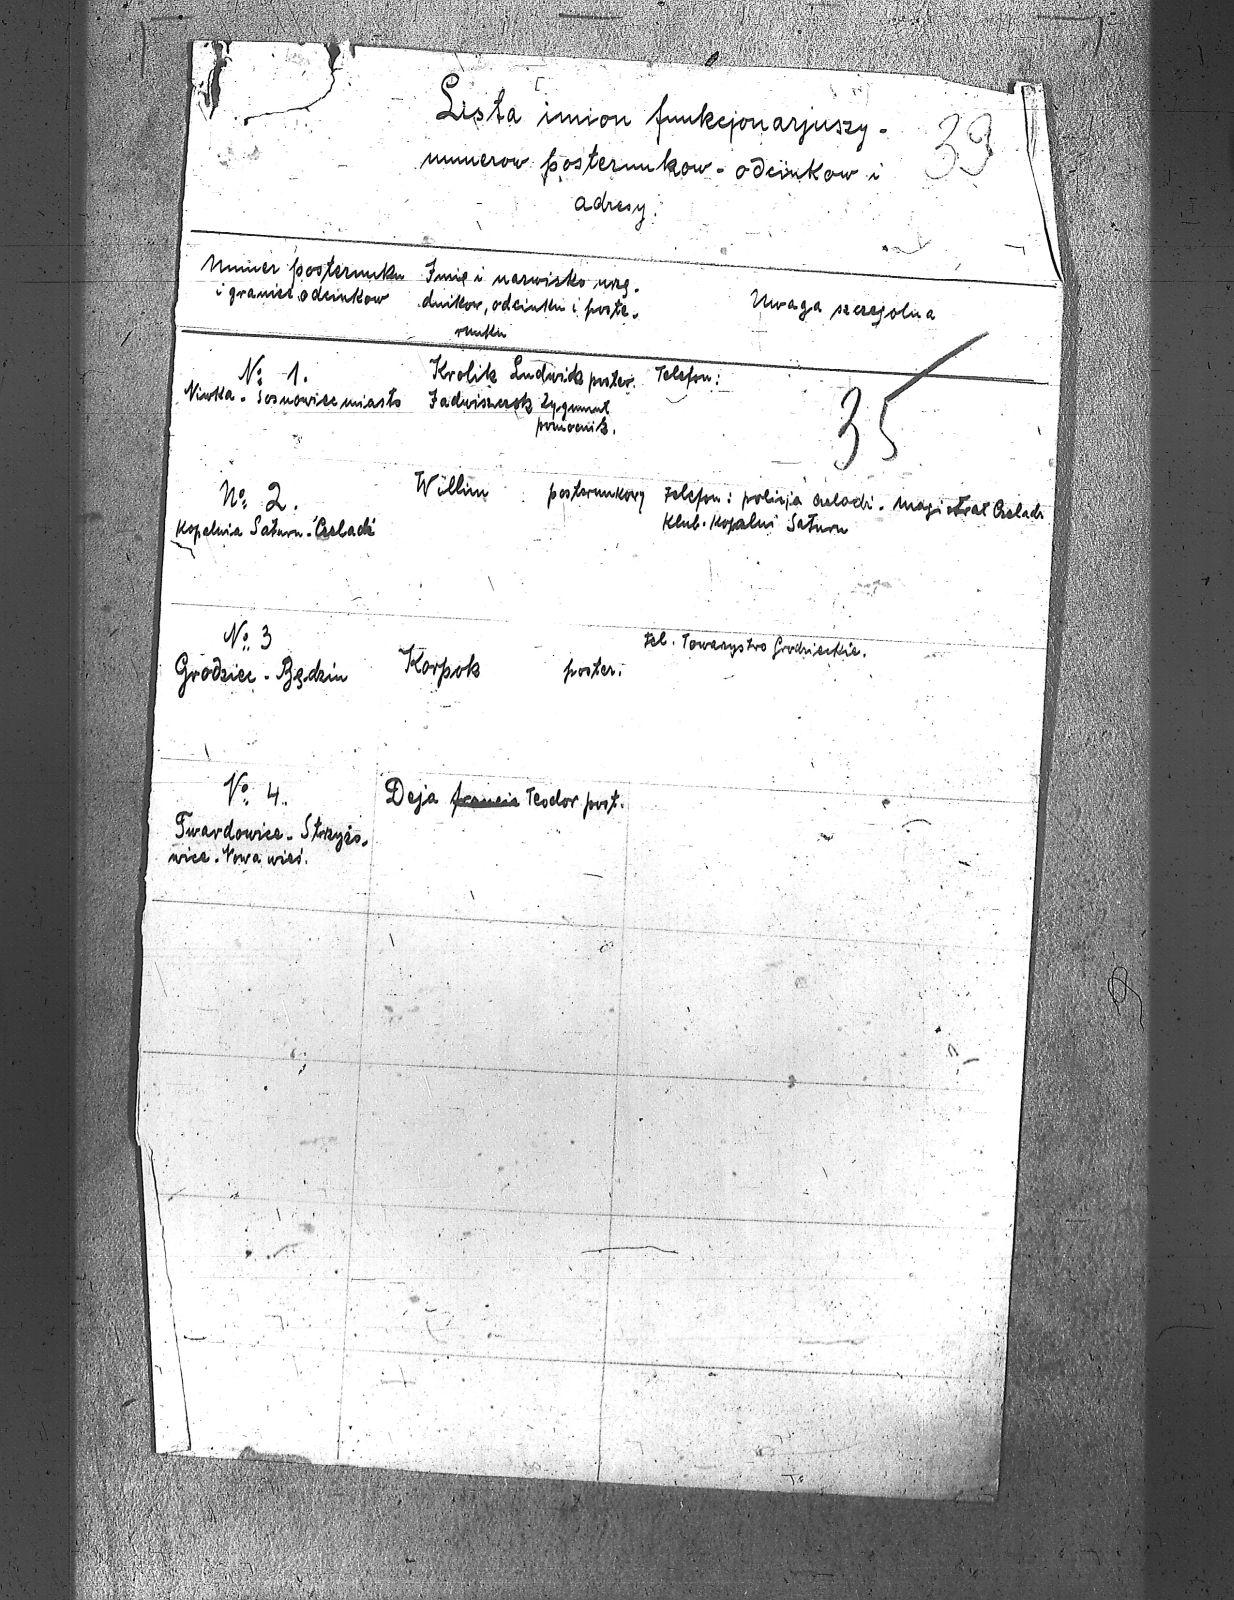 Lista imion funkcjonarjuszy -
numerow posterunkow - odcinkow i
adresy.
39
Numer posterunku
i granice odcinkow
Imię i nazwisko urzę-
dnikow, odcinku i poste-
runku
Uwaga szczejolna
No 1.
Niwka - Sosnowice miasto
Krolik Ludwick poster.
Jadwiszczok Zygmunt
pomocnik.
Telefon:
35
No 2.
Kopelnia Saturn - Czeladi
Willim posterunkowy
Telefon: policja Czeladi - magistrat Czeladi
Klub - Kopalni Saturn
No 3
Grodziec - Będzin
Korpok poster.
tel. Towarzystwo Grodzieckie.
No 4.
Twardowice - Strzyżo-
wice - Nowa wieś.
Deja francis Teodor post.